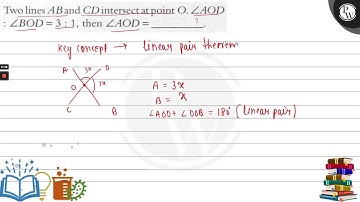 Two lines AB and CD intersect at point O. ∠AOD
: ∠BOD = 3 : 1, then ∠AOD = ?.
Key concept → linear pair theorem
A 3x D
O x
C B
A = 3x
B = x
∠AOD + ∠DOB = 180° (linear pair)